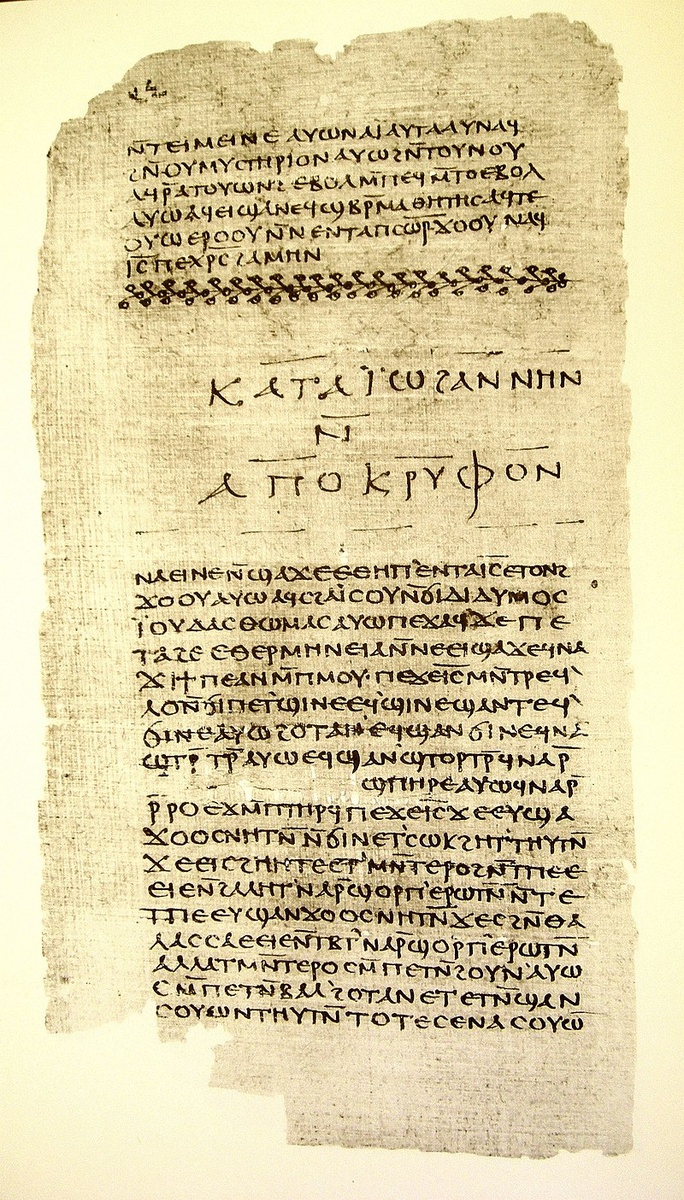 ⲛ̄ⲧⲉⲓⲙⲉⲓⲛⲉ ⲁⲩⲱ ⲛⲁⲓ̈ ⲁⲩⲧⲁⲁⲩ ⲛⲁϥ
ϩⲛ̄ⲛⲟⲩⲙⲩⲥⲧⲏⲣⲓⲟⲛ ⲁⲩⲱ ϩⲛ̄ⲧⲟⲩⲛⲟⲩ
ⲁϥⲣ̄ⲁⲧⲟⲩⲱⲛϩ ⲉⲃⲟⲗ ⲙ̄ⲡⲉϥⲙ̄ⲧⲟ ⲉⲃⲟⲗ
ⲁⲩⲱ ⲁϥⲉⲓ ϣⲁ ⲛⲉϥϣⲃⲣ̄ⲙⲁⲑⲏⲧⲏⲥ ⲁϥⲧⲉ
ⲟⲩⲱ ⲉⲣⲟⲟⲩ ⲛ̄ⲛⲉⲛⲧⲁⲡⲥⲱ̄ⲣ̄ ϫⲟⲟⲩ ⲛⲁϥ
ⲓ̄ⲥ̄ ⲡⲉⲭ̄ⲣ̄ⲥ̄ ϩⲁⲙⲏⲛ
ⲕⲁⲧⲁ ⲓ̈ⲱϩⲁⲛⲛⲏⲛ
ⲛ̄
ⲁⲡⲟⲕⲣⲩⲫⲟⲛ
ⲛⲁⲉⲓ ⲛⲉ ⲛ̄ϣⲁϫⲉ ⲉⲑⲏⲡ` ⲉⲛⲧⲁⲓ̄ⲥ̄ ⲉⲧⲟⲛϩ
ϫⲟⲟⲩ ⲁⲩⲱ ⲁϥⲥϩⲁⲓ̈ⲥⲟⲩ ⲛ̄ϭⲓ ⲇⲓⲇⲩⲙⲟⲥ
ⲓ̈ⲟⲩⲇⲁⲥ ⲑⲱⲙⲁⲥ ⲁⲩⲱ ⲡⲉϫⲁϥ ϫⲉ ⲡⲉ
ⲧⲁϩⲉ ⲉⲑⲉⲣⲙⲏⲛⲉⲓⲁ ⲛ̄ⲛⲉⲉⲓϣⲁϫⲉ ϥⲛⲁ
ϫⲓ ϯⲡⲉ ⲁⲛ ⲙ̄ⲡⲙⲟⲩ· ⲡⲉϫⲉ ⲓ̄ⲥ̄ ⲙⲛ̄ⲧⲣⲉϥ`
ⲗⲟ ⲛ̄ϭⲓ ⲡⲉⲧ`ϣⲓⲛⲉ ⲉϥϣⲓⲛⲉ ϣⲁⲛⲧⲉϥ`
ϭⲓⲛⲉ ⲁⲩⲱ ϩⲟⲧⲁⲛ` ⲉϥϣⲁⲛϭⲓⲛⲉ ϥⲛⲁ
ϣⲧⲣ̄ⲧⲣ̄ ⲁⲩⲱ ⲉϥϣⲁⲛϣⲧⲟⲣⲧⲣ̄ ϥⲛⲁⲣ̄
ϣⲡⲏⲣⲉ ⲁⲩⲱ ϥⲛⲁⲣ̄
ⲣ̄ⲣⲟ ⲉϫⲙ̄ ⲡⲧⲏⲣϥ ⲡⲉϫⲉ ⲓ̄ⲥ̄ ϫⲉ ⲉⲩϣⲁ
ϫⲟⲟⲥ ⲛⲏⲧⲛ̄ ⲛ̄ϭⲓ ⲛⲉⲧ`ⲥⲱⲕ ϩⲏⲧ` ⲑⲏⲩⲧⲛ̄
ϫⲉ ⲉⲓⲥϩⲏⲏⲧⲉ ⲉⲧ`ⲙⲛ̄ⲧⲉⲣⲟ ϩⲛ̄ ⲧⲡⲉ ⲉ
ⲉⲓⲉ ⲛ̄ϩⲁⲗⲏⲧ` ⲛⲁⲣ̄ϣⲟⲣⲡ` ⲉⲣⲱⲧⲛ̄ ⲛ̄ⲧⲉ
ⲧⲡⲉ ⲉⲩϣⲁⲛϫⲟⲟⲥ ⲛⲏⲧⲛ̄ ϫⲉ ⲥϩⲛ̄ ⲑⲁ
ⲗⲁⲥⲥⲁ ⲉⲉⲓⲉ ⲛ̄ⲧⲃⲧ` ⲛⲁⲣ̄ϣⲟⲣⲡ` ⲉⲣⲱⲧⲛ̄
ⲁⲗⲗⲁ ⲧⲙⲛ̄ⲧⲉⲣⲟ ⲥⲙ̄ⲡⲉⲧⲛ̄ϩⲟⲩⲛ` ⲁⲩⲱ
ⲥⲙ̄ⲡⲉⲧⲛ̄ⲃⲁⲗ` ϩⲟⲧⲁⲛ ⲉⲧⲉⲧⲛ̄ϣⲁⲛ
ⲥⲟⲩⲱⲛ ⲑⲏⲩⲧⲛ̄ ⲧⲟⲧⲉ ⲥⲉⲛⲁⲥⲟⲩⲱ